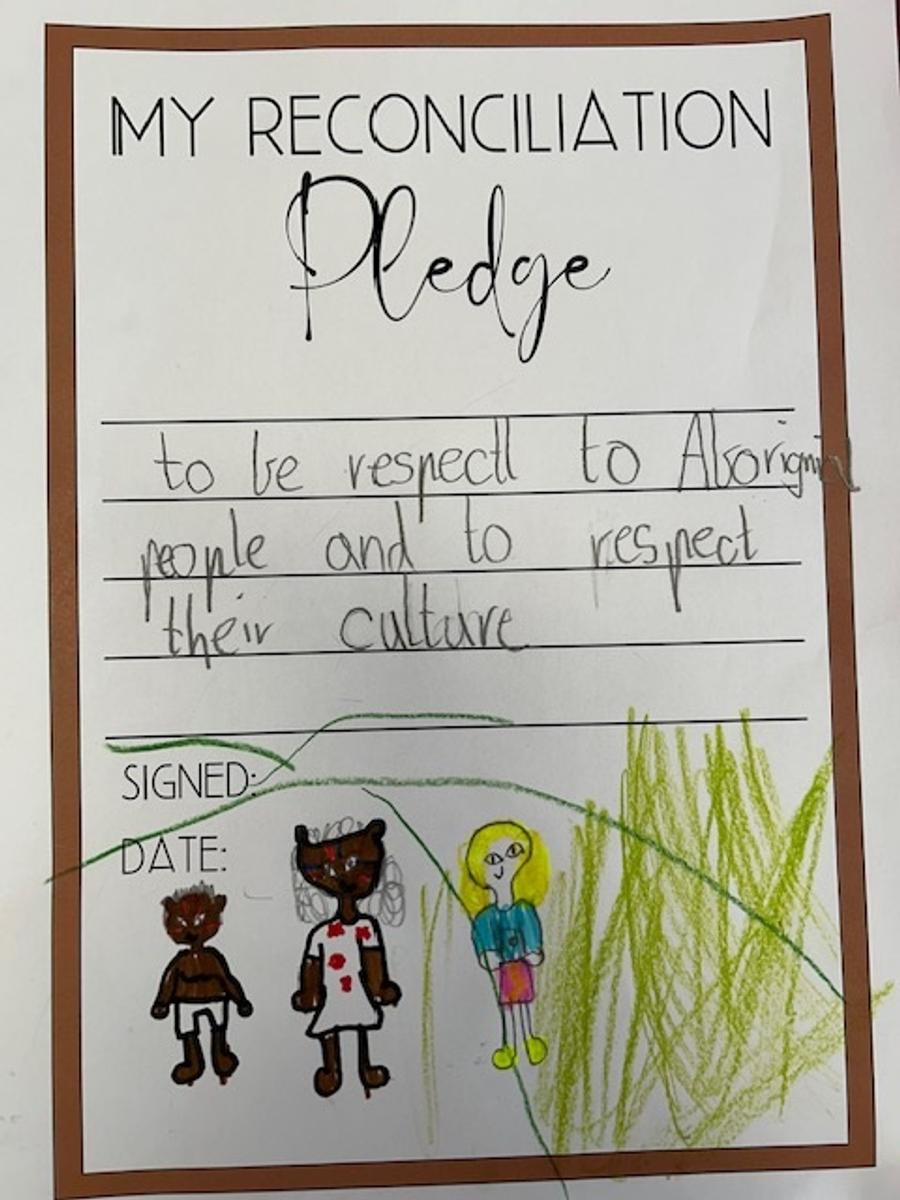 MY RECONCILIATION
Pledge
to be respectl to Aboriginal
people and to respect
their culture
SIGNED:
DATE: